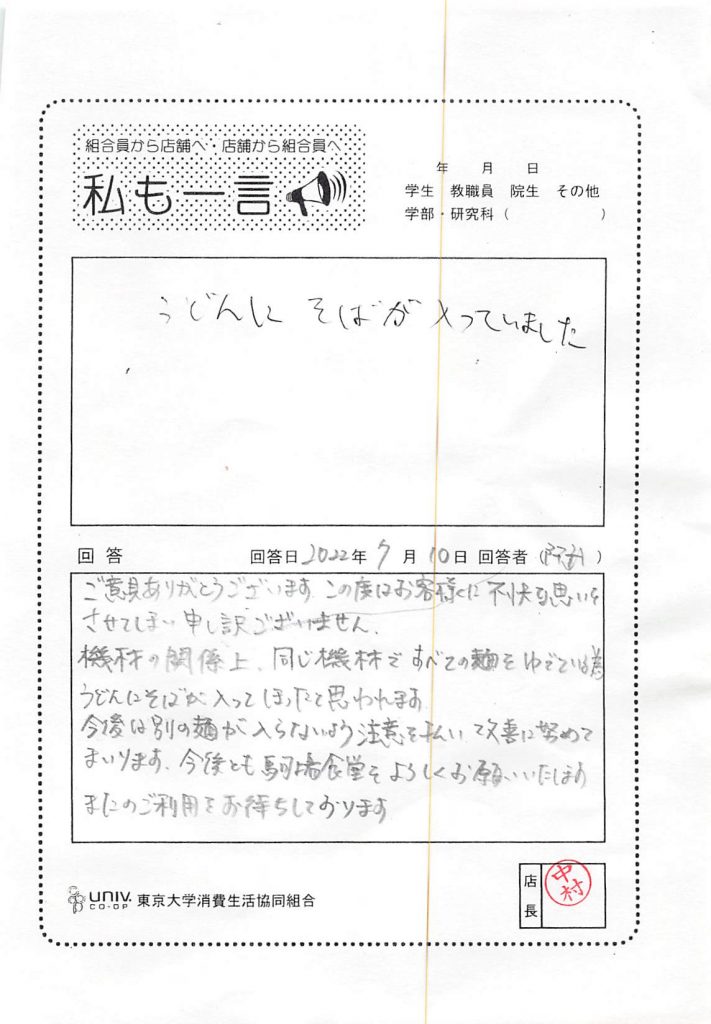 組合員から店舗へ・店舗から組合員へ
私も一言
年 月 日
学生 教職員 院生 その他
学部・研究科( )
うどんに そばが 入っていました
回答 回答日 2022年 7月 10日 回答者( )
ご意見ありがとうございます この度はお客様に 不快な思いを
させてしまい 申し訳ございません、
機材の関係上、同じ機材で すべての麺を ゆでている為
うどんにそばが 入ってしまったと思われます
今後は別の麺が 入らないよう 注意を払い 改善に努めて
まいります、今後とも 駒場食堂を よろしくお願いいたします
またのご利用を お待ちしております
UNIV. CO-OP 東京大学消費生活協同組合
店長 中村